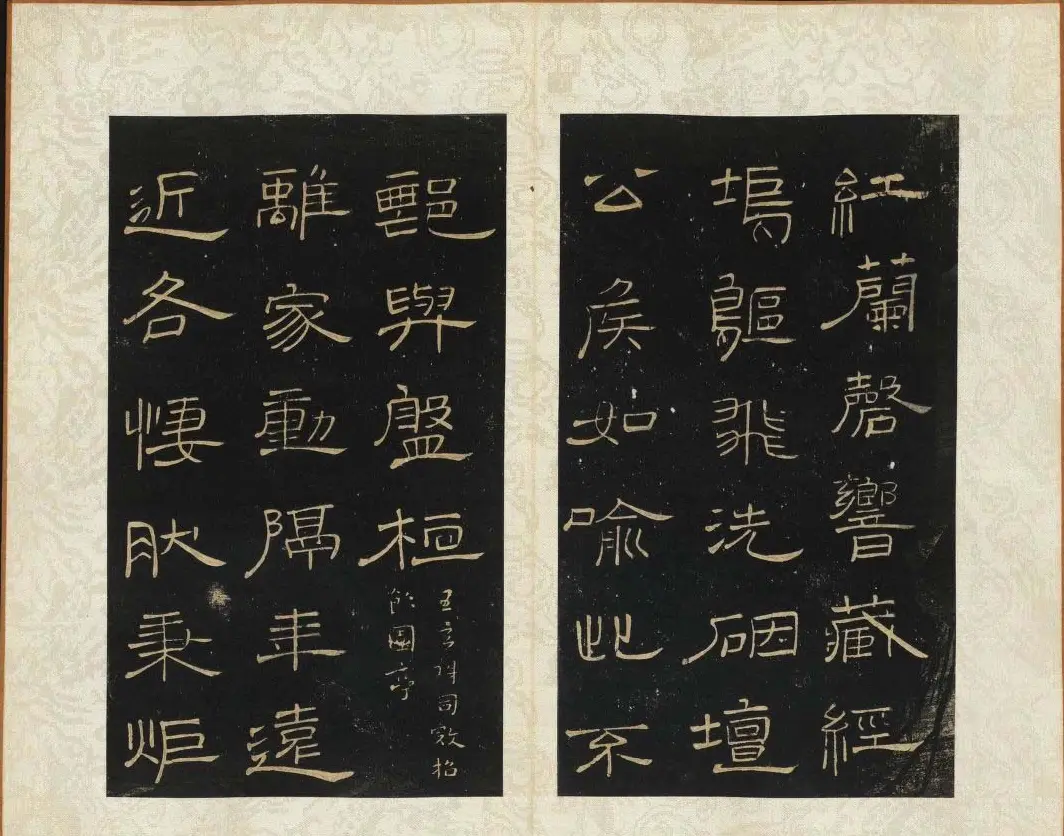 紅蘭磬響藏經
塢鷗飛洗硘壇
公侯如喻此不
鄙與盤桓
同
招
飲園亭
離家動隔年遠
近各悽肰秉炬